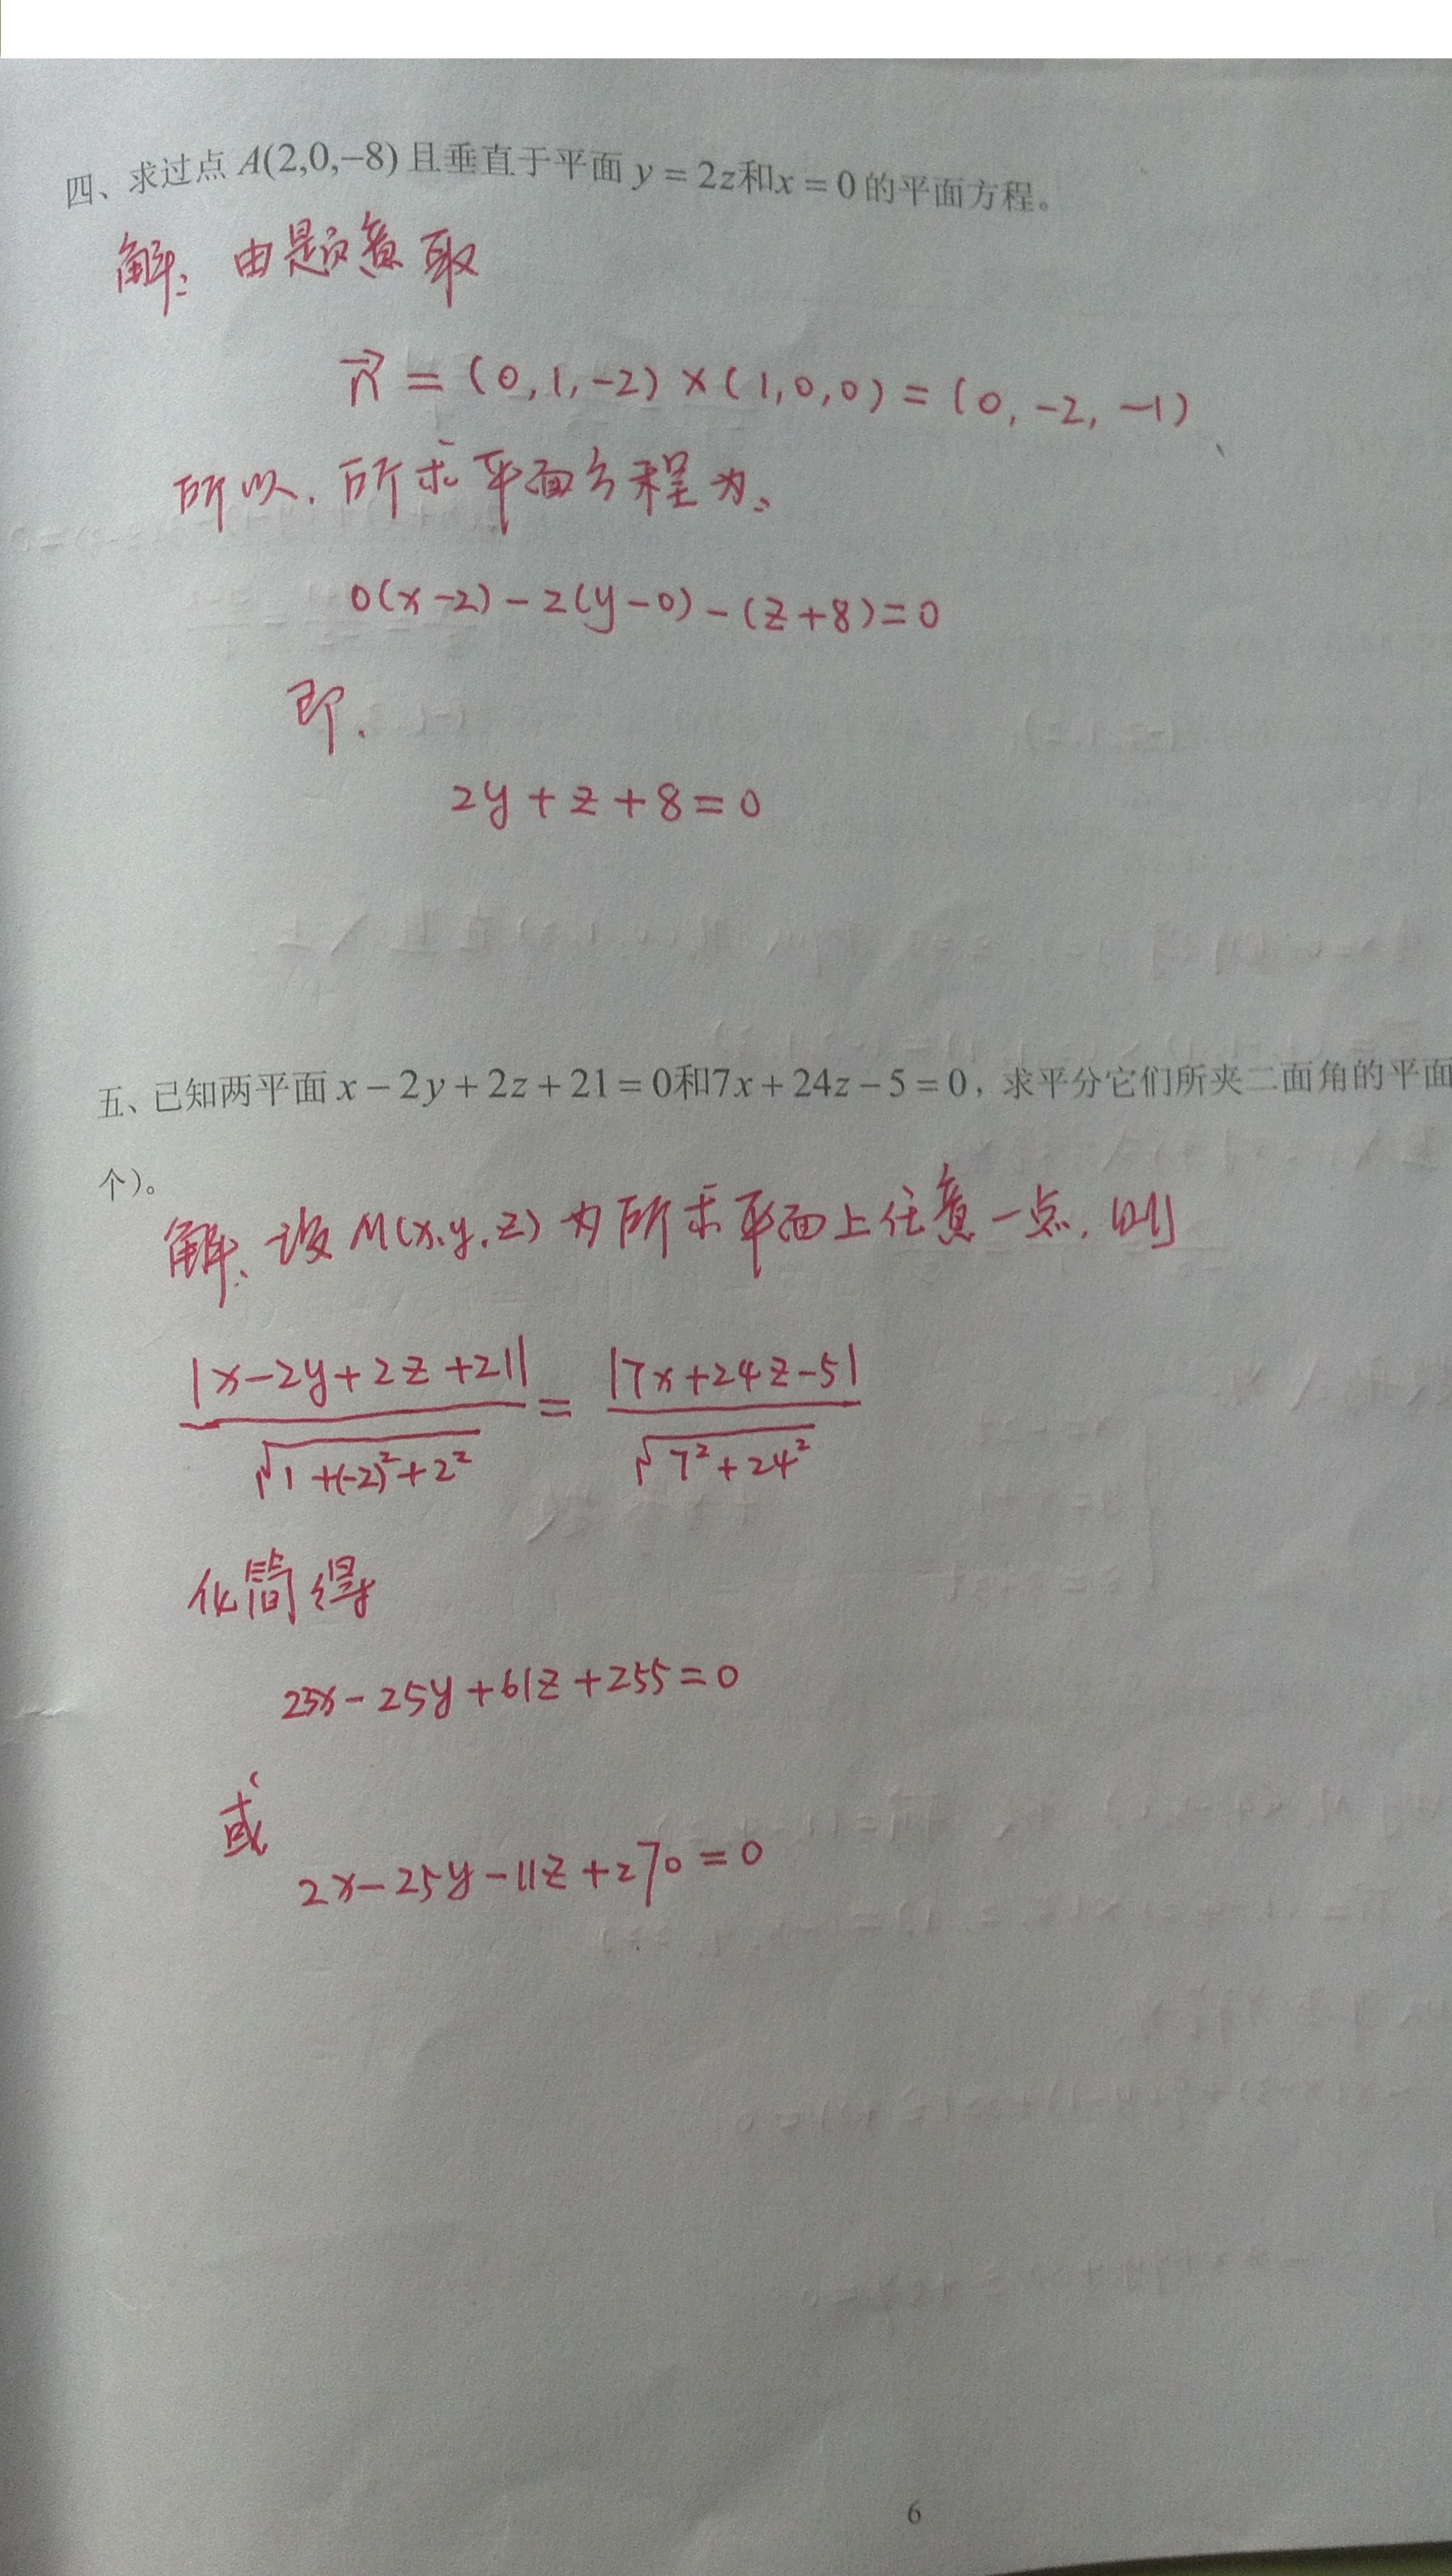 四、求过点 A(2,0,−8) 且垂直于平面 y = 2z和x = 0 的平面方程。
解: 由题意取
n⃗ = (0,1,-2) × (1,0,0) = (0,-2,-1)
所以,所求平面方程为:
0(x-2)-2(y-0)-(z+8)=0
即,
2y+z+8=0
五、已知两平面 x − 2y + 2z + 21 = 0和7x + 24z − 5 = 0, 求平分它们所夹二面角的平面
个)。
解: 设 M(x,y,z) 为所求平面上任意一点,则
|x-2y+2z+21|/√(1+(-2)²+2²) = |7x+24z-5|/√(7²+24²)
化简得
23x-25y+61z+255=0
或
2x-25y-11z+270=0
6